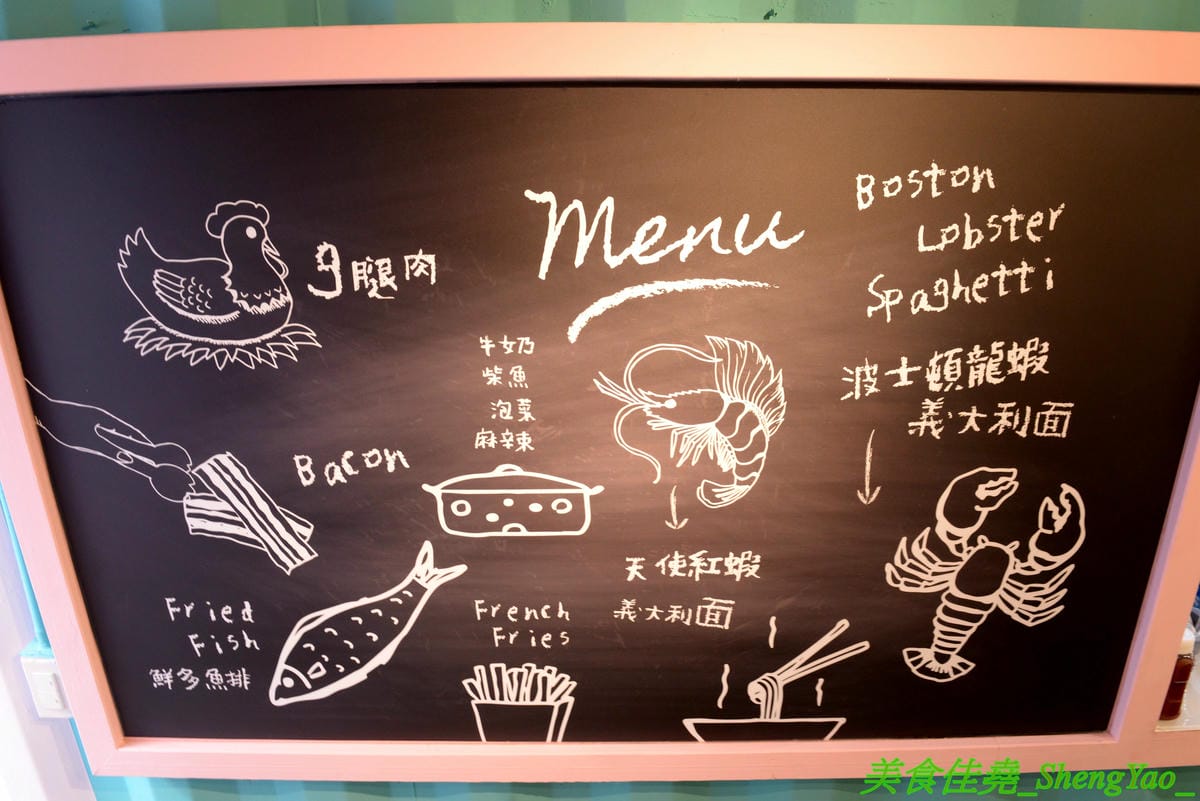 Menu
ㄋ腿肉
Boston
Lobster
Spaghetti
波士頓龍蝦
義大利面
牛奶
柴魚
泡菜
麻辣
Bacon
天使紅蝦
義大利面
Fried
Fish
鮮多魚排
French
Fries
美食佳堯_ShengYao_